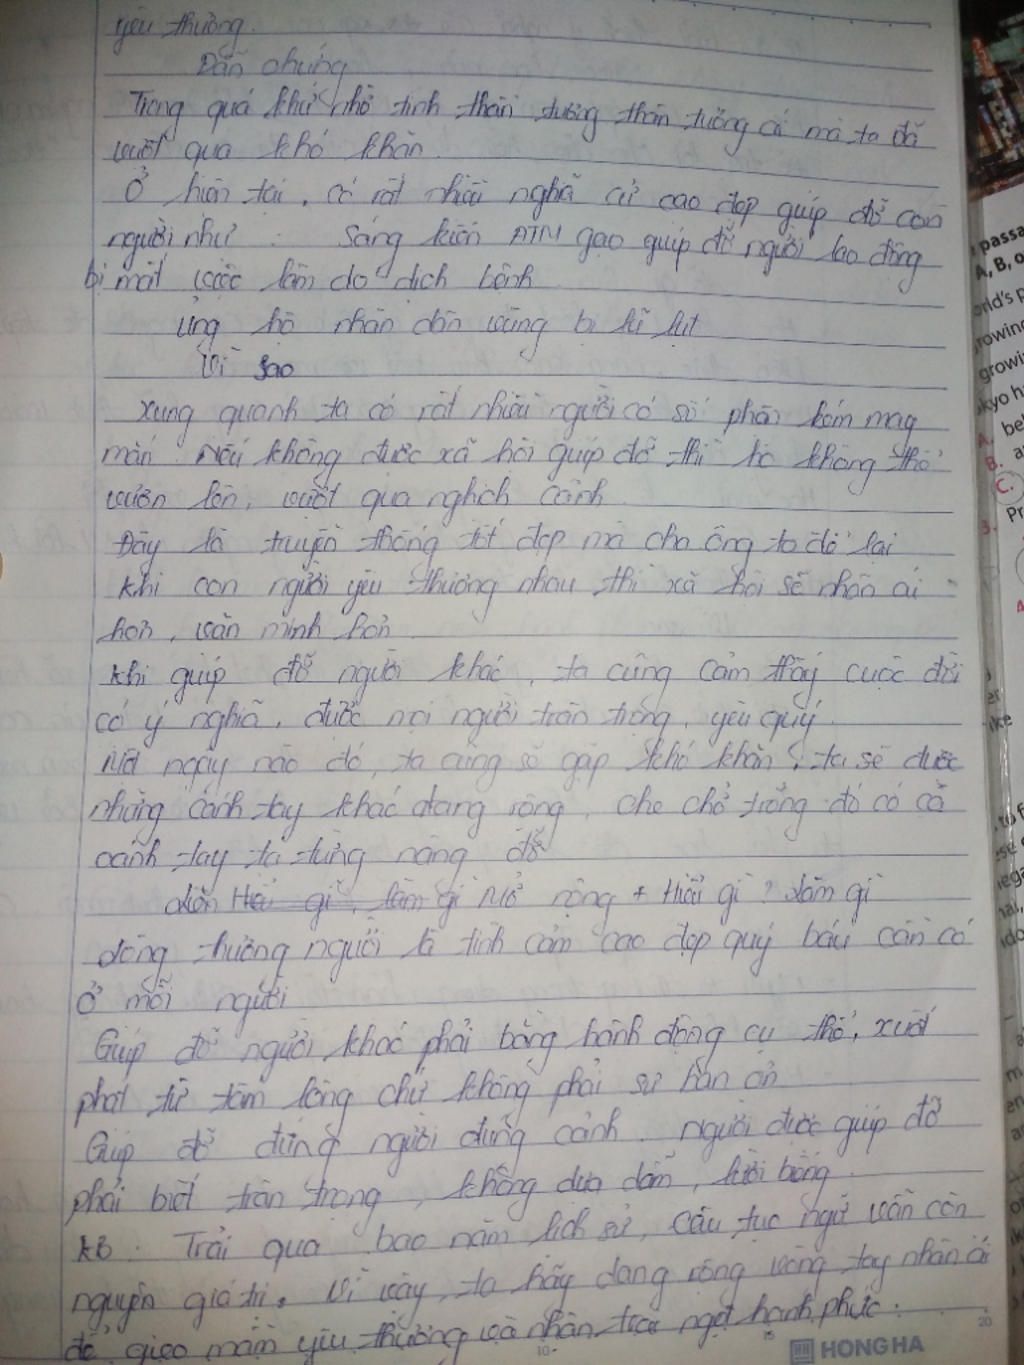 yêu thương.
Dẫn chứng
Trong quá khứ nhờ tinh thần tương thân tương ái mà ta đã
vượt qua khó khăn.
Ở hiện tại, có rất nhiều nghĩa cử cao đẹp giúp đỡ con
người như : Sáng kiến ATM gạo giúp đỡ người lao động
bị mất việc làm do dịch bệnh
ủng hộ nhân dân vùng bị lũ lụt
Vì sao
Xung quanh ta có rất nhiều người có số phận kém may
mắn. Nếu không được xã hội giúp đỡ thì họ không thể
vươn lên, vượt qua nghịch cảnh
Đây là truyền thống tốt đẹp mà cha ông ta để lại
Khi con người yêu thương nhau thì xã hội sẽ nhân ái
hơn, văn minh hơn
Khi giúp đỡ người khác, ta cũng cảm thấy cuộc đời
có ý nghĩa, được mọi người trân trọng, yêu quý.
Một ngày nào đó, ta cũng sẽ gặp khó khăn, ta sẽ được
những cánh tay khác dang rộng, che chở trong đó có cả
cánh tay ta từng nâng đỡ
gì, làm gì Mở rộng + Hiểu gì? Làm gì
Lòng thương người là tình cảm cao đẹp quý báu cần có
ở mỗi người
Giúp đỡ người khác phải bằng hành động cụ thể, xuất
phát từ tấm lòng chứ không phải sự ban ơn
Giúp đỡ đúng người đúng cảnh. Người được giúp đỡ
phải biết trân trọng, không dựa dẫm, lười biếng.
KB. Trải qua bao năm lịch sử, câu tục ngữ vẫn còn
nguyên giá trị. Vì vậy, ta hãy dang rộng vòng tay nhân ái
để gieo mầm yêu thương và nhận trái ngọt hạnh phúc.
HONG HA
10
15
20
passa
A, B, o
orld's p
rowing
growi
kyo ha
A. be
B. a
C.
3. Pr